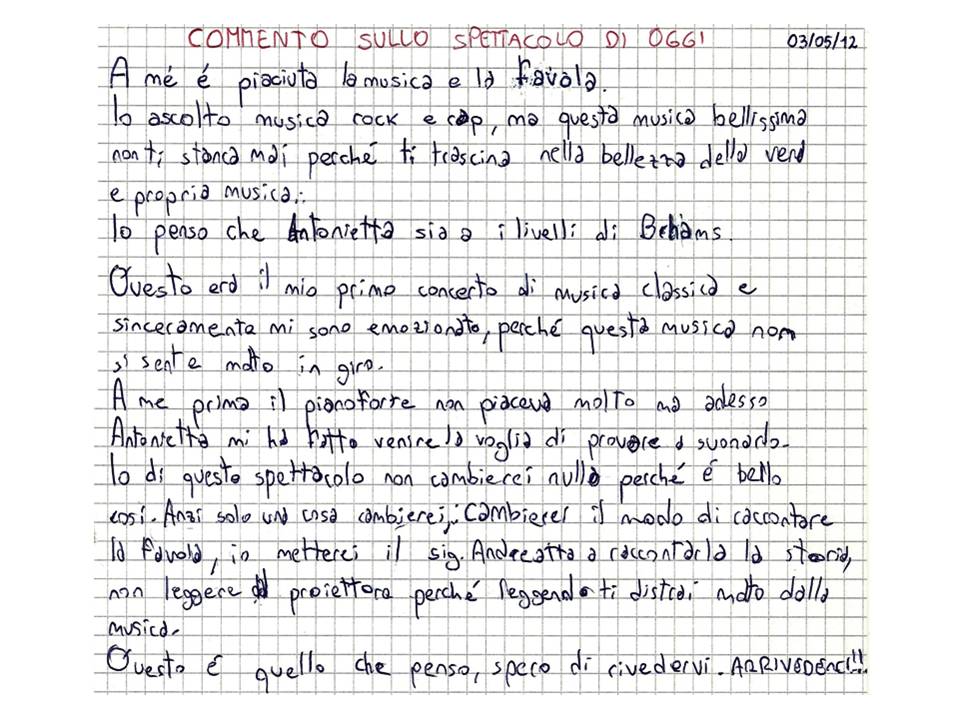 COMMENTO SULLO SPETTACOLO DI OGGI 03/05/12
A mé é piaciuta la musica e la favola.
Io ascolto musica rock e rap, ma questa musica bellissima
non ti stanca mai perché ti trascina nella bellezza della vera
e propria musica.
Io penso che Antonietta sia a i livelli di Brhams.
Questo era il mio primo concerto di musica classica e
sinceramente mi sono emozionato, perché questa mussica non
si sente molto in giro.
A me prima il pianoforte non piaceva molto ma adesso
Antonietta mi ha fatto venire la voglia di provare a suonarlo.
Io di questo spettacolo non cambierei nulla perché é bello
cosí. Anzi solo una cosa cambierei: Cambierei il modo di raccontare
la favola, io metterei il sig. Andreatta a raccontarla la storia,
non leggere al proiettore perché leggendo ti distrai molto dalla
musica.
Questo é quello che penso, spero di rivedervi. ARRIVEDERCI!!